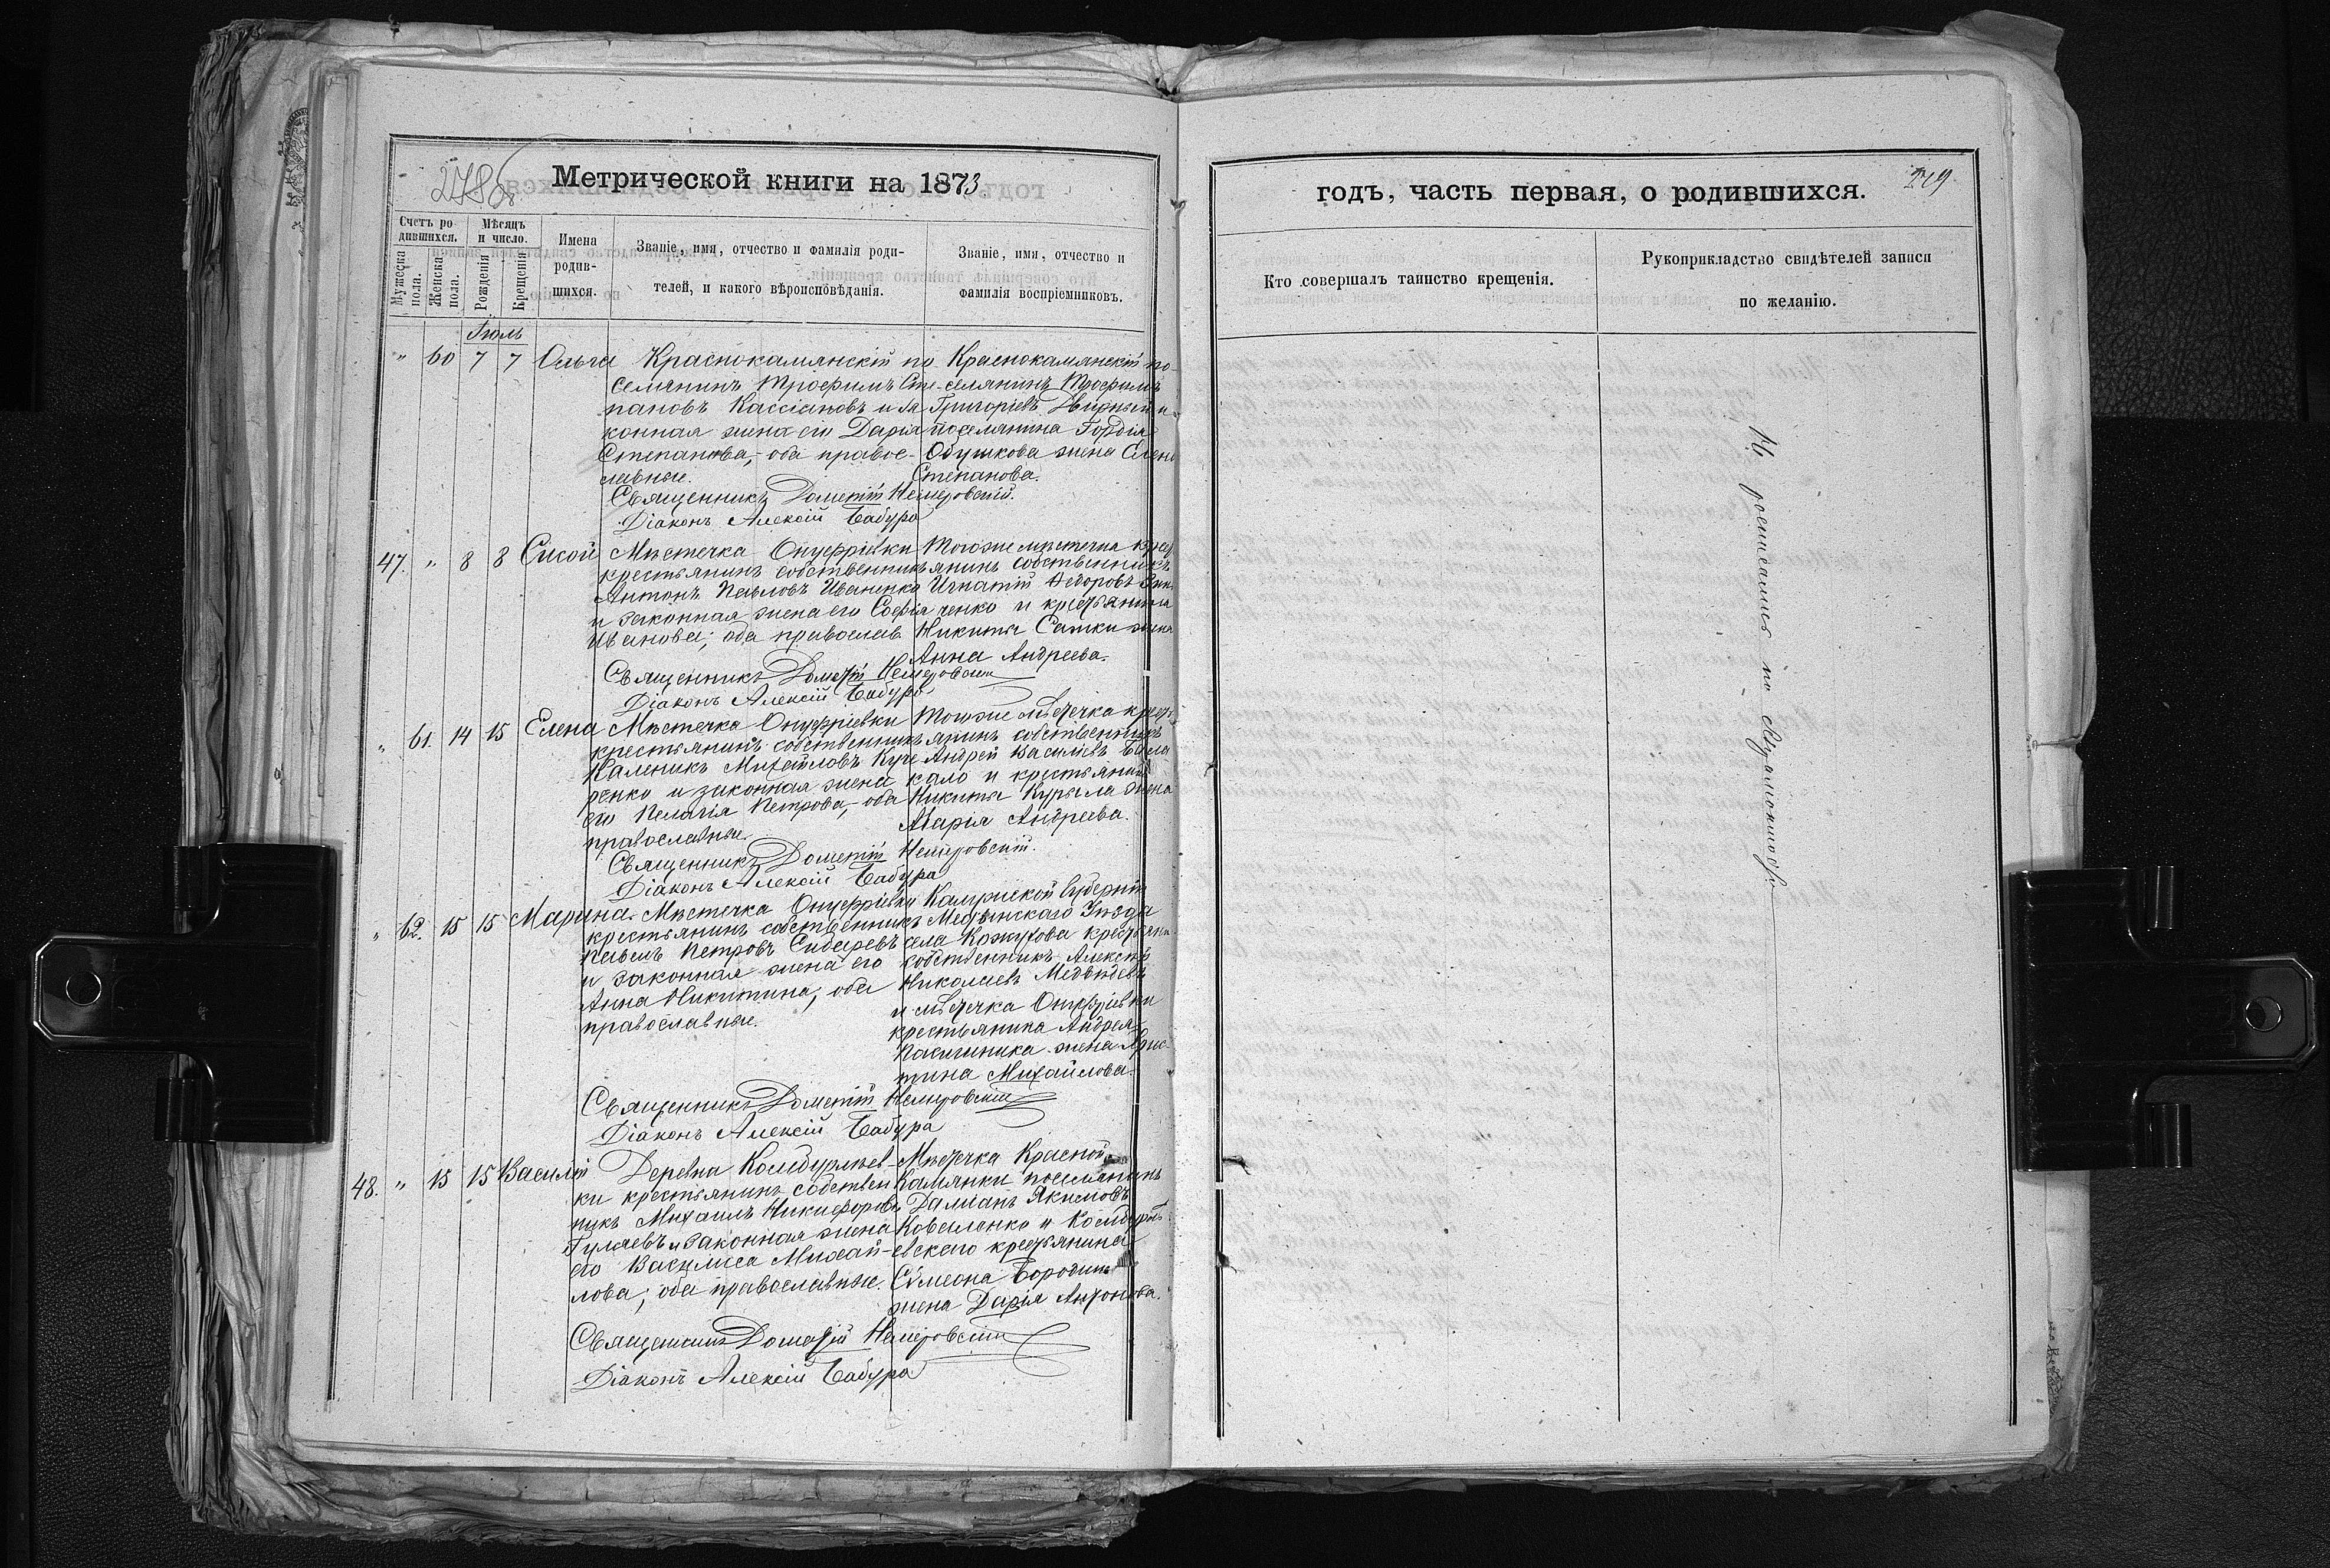 278 об
Метрической книги на 1873
Счетъ родившихся.
Мужеска пола.
Женска пола.
Мѣсяцъ и число.
Рожденія
Крещенія
Имена родив-
шихся.
Званіе, имя, отчество и фамилія роди-
телей, и какого вѣроисповѣданія.
Званіе, имя, отчество и
фамилія воспріемниковъ.
Іюль
" 60 7 7 Ольга
Краснокамянскій по
селянинъ Трофимъ Сте-
пановъ Кассіановъ и за
конная жена его Дарія
Степанова, оба правос-
лавные.
Краснокамянскій по-
селянинъ Трофимъ
Григоріевъ и
поселянина Гордія
жена Елена
Степанова.
Священникъ Дометій Немеровскій.
Діаконъ Алексій Бабура
47. " 8 8 Сисой
Мѣстечка Онуфріевки
крестьянинъ собственникъ
Антонъ Павловъ Иваненко
и законная жена его Софія
Иванова; оба православ
Тогоже мѣстечка крест
янинъ собственникъ
Игнатій Федоровъ
ченко и крестьянина
Никиты жена
Анна Андреева.
Священникъ Дометій Немеровскій
Діаконъ Алексій Бабура
" 61. 14 15 Елена
Мѣстечка Онуфріевки
крестьянинъ собственникъ
Каленикъ Михайловъ Куче
ренко и законная жена
его Пелагія Петрова, оба
православные.
Тогоже мѣстечка крест
янинъ собственникъ
Андрей Василіевъ Бала
кало и крестьянина
Никиты Курыла жена
Марія Андреева.
Священникъ Дометій Немеровскій.
Діаконъ Алексій Бабура
" 62. 15 15 Марина.
Мѣстечка Онуфріевки
крестьянинъ собственникъ
Павелъ Петровъ
и законная жена его
Анна Никитина, оба
православные.
Калужской Губерніи
Медынскаго Уѣзда
села Кожухова крестьянин
собственникъ Алексѣй
Николаевъ Медвѣдевъ
и мѣстечка Онуфріевки
крестьянина Андрея
Пасишника жена Хрис-
тина Михайлова.
Священникъ Дометій Немеровскій
Діаконъ Алексій Бабура
48. " 15 15 Василій
Деревни
ки крестьянинъ собствен
никъ Михаилъ Никифоровъ
Гуляевъ и законная жена
его Василиса Михай-
лова; оба православные.
Мѣстечка Красной
Камянки поселянинъ
Даміанъ Якимовъ
Коваленко и
евскаго крестьянина
Сѵмеона Бородина
жена Дарія Антонова.
Священникъ Дометій Немеровскій
Діаконъ Алексій Бабура
годъ, часть первая, о родившихся.
279
Кто совершалъ таинство крещенія.
Рукоприкладство свидѣтелей записи
по желанію.
по